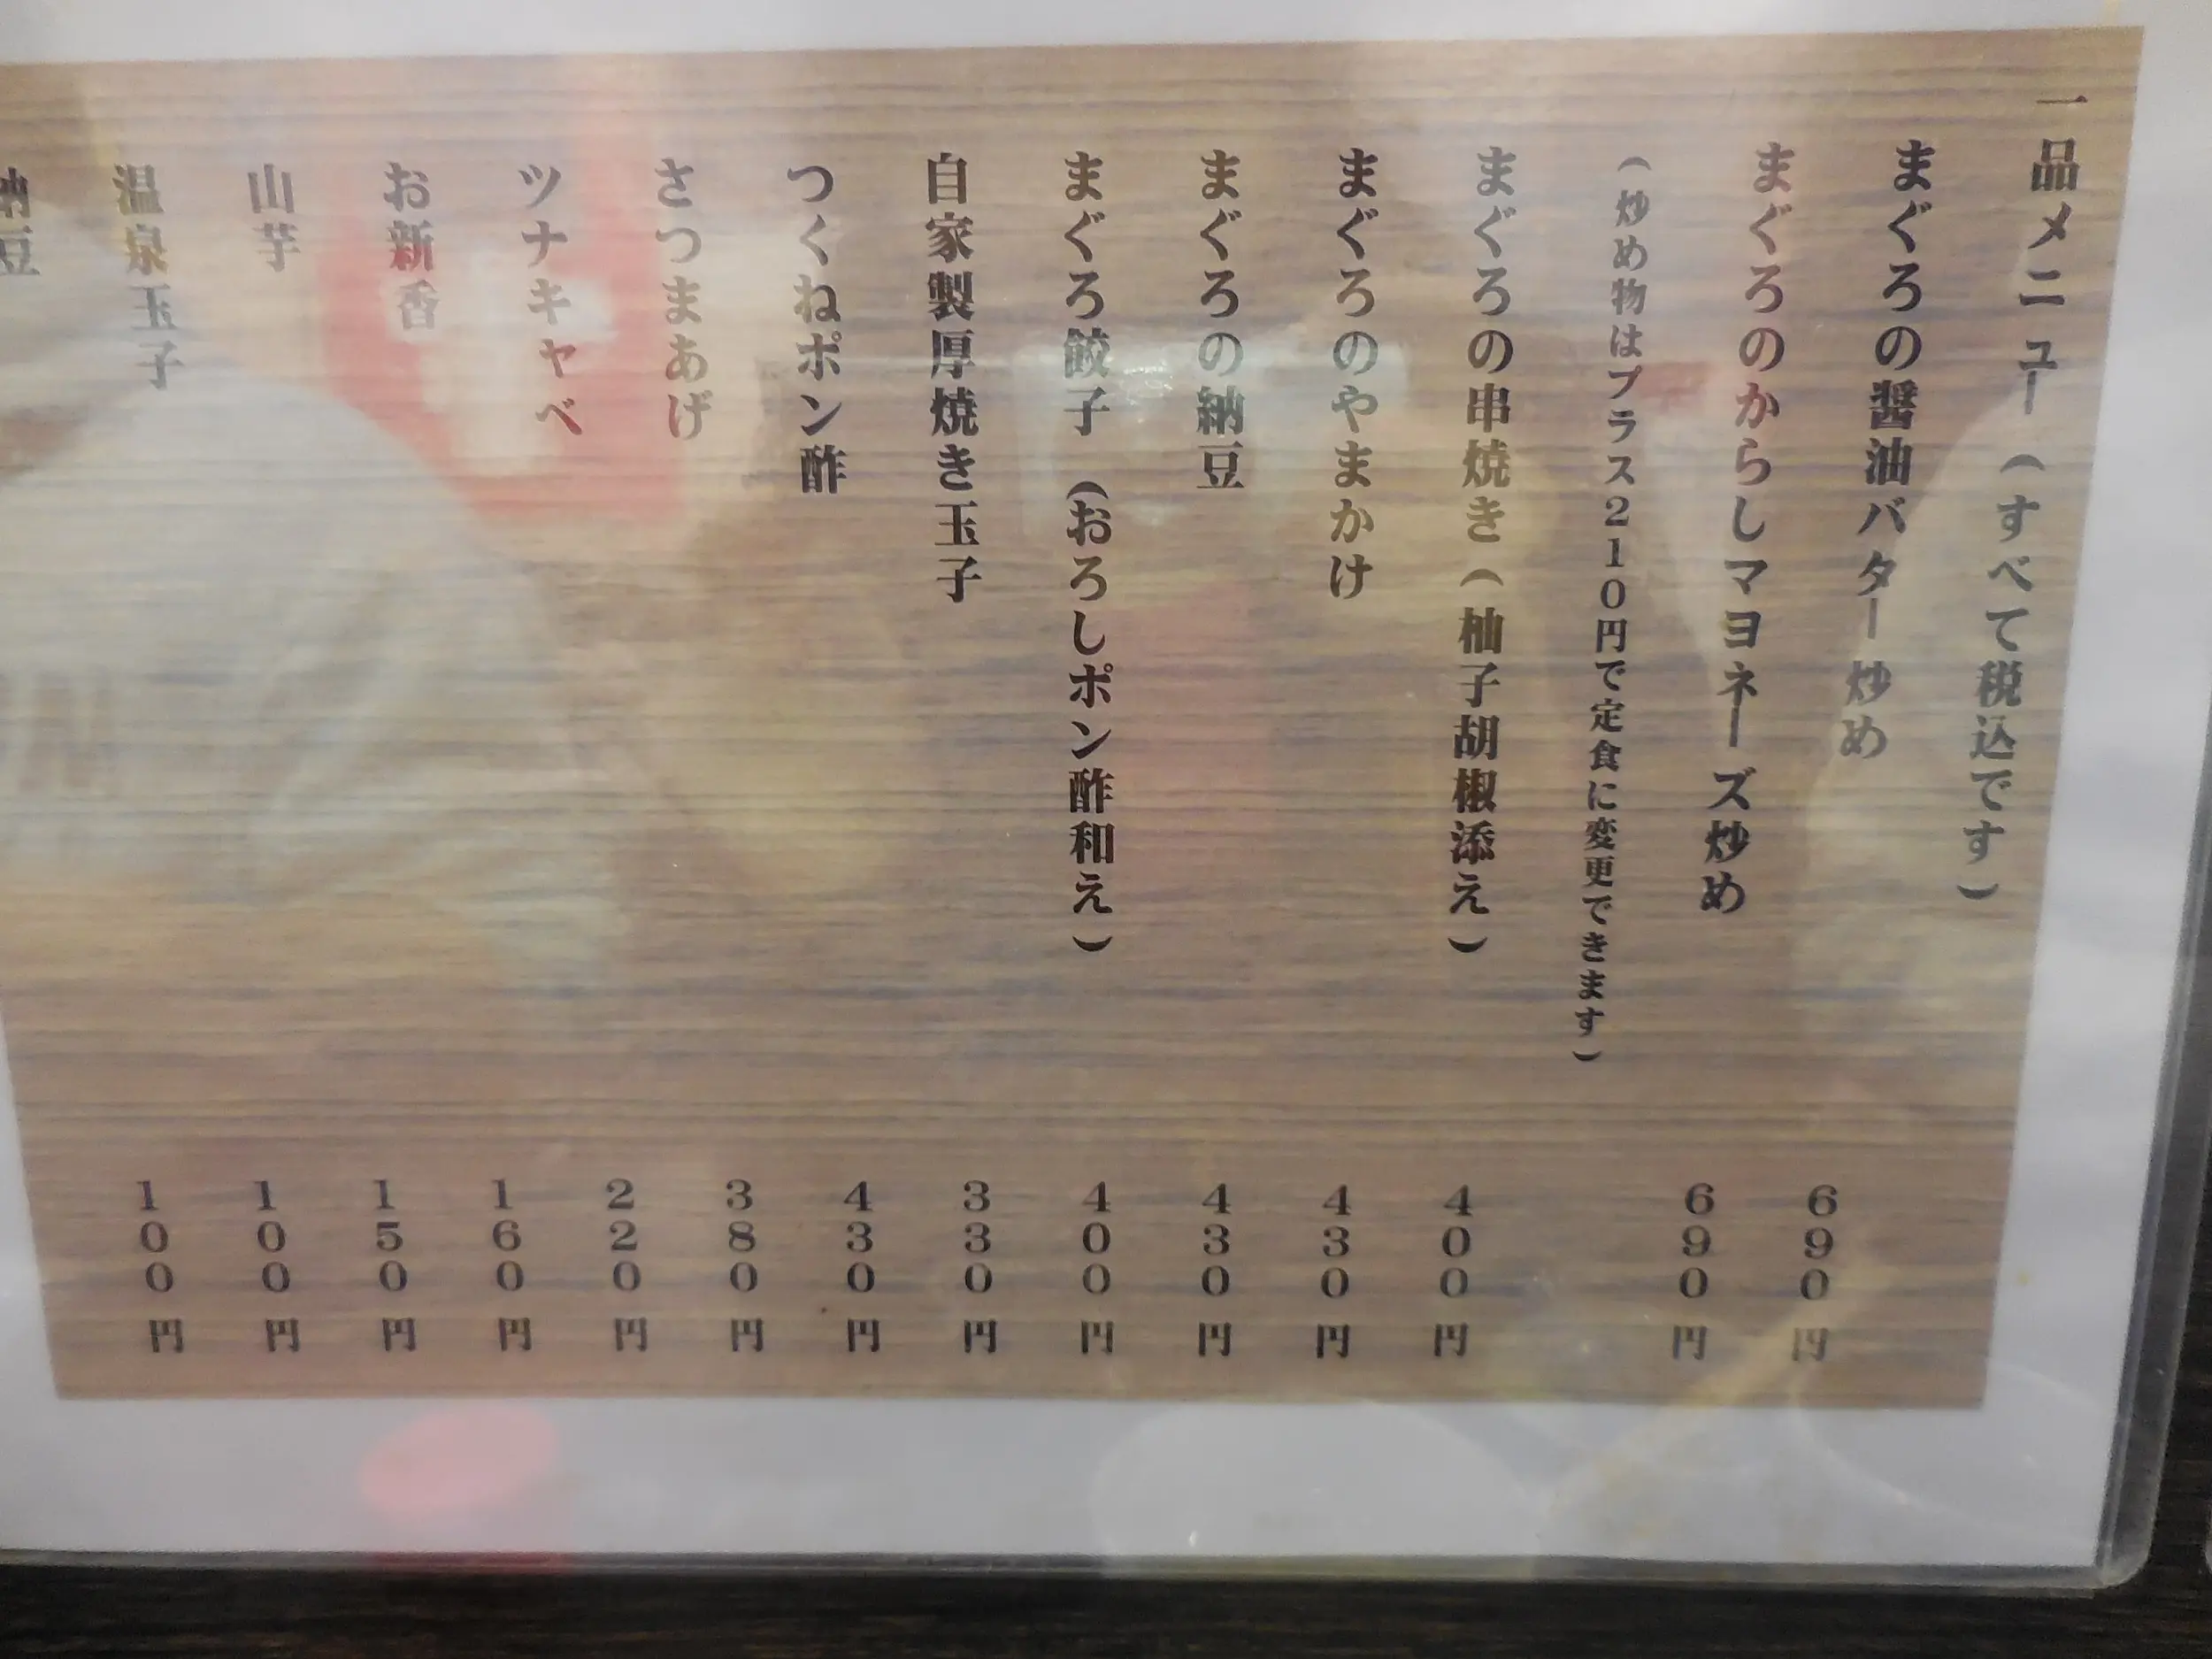 一品メニュー（すべて税込です）
まぐろの醤油バター炒め 690円
まぐろのからしマヨネーズ炒め 690円
（炒め物はプラス210円で定食に変更できます）
まぐろの串焼き（柚子胡椒添え） 400円
まぐろのやまかけ 430円
まぐろの納豆 430円
まぐろ餃子（おろしポン酢和え） 400円
自家製厚焼き玉子 330円
つくねポン酢 430円
さつまあげ 380円
ツナキャベ 220円
お新香 160円
山芋 150円
温泉玉子 100円
納豆 100円